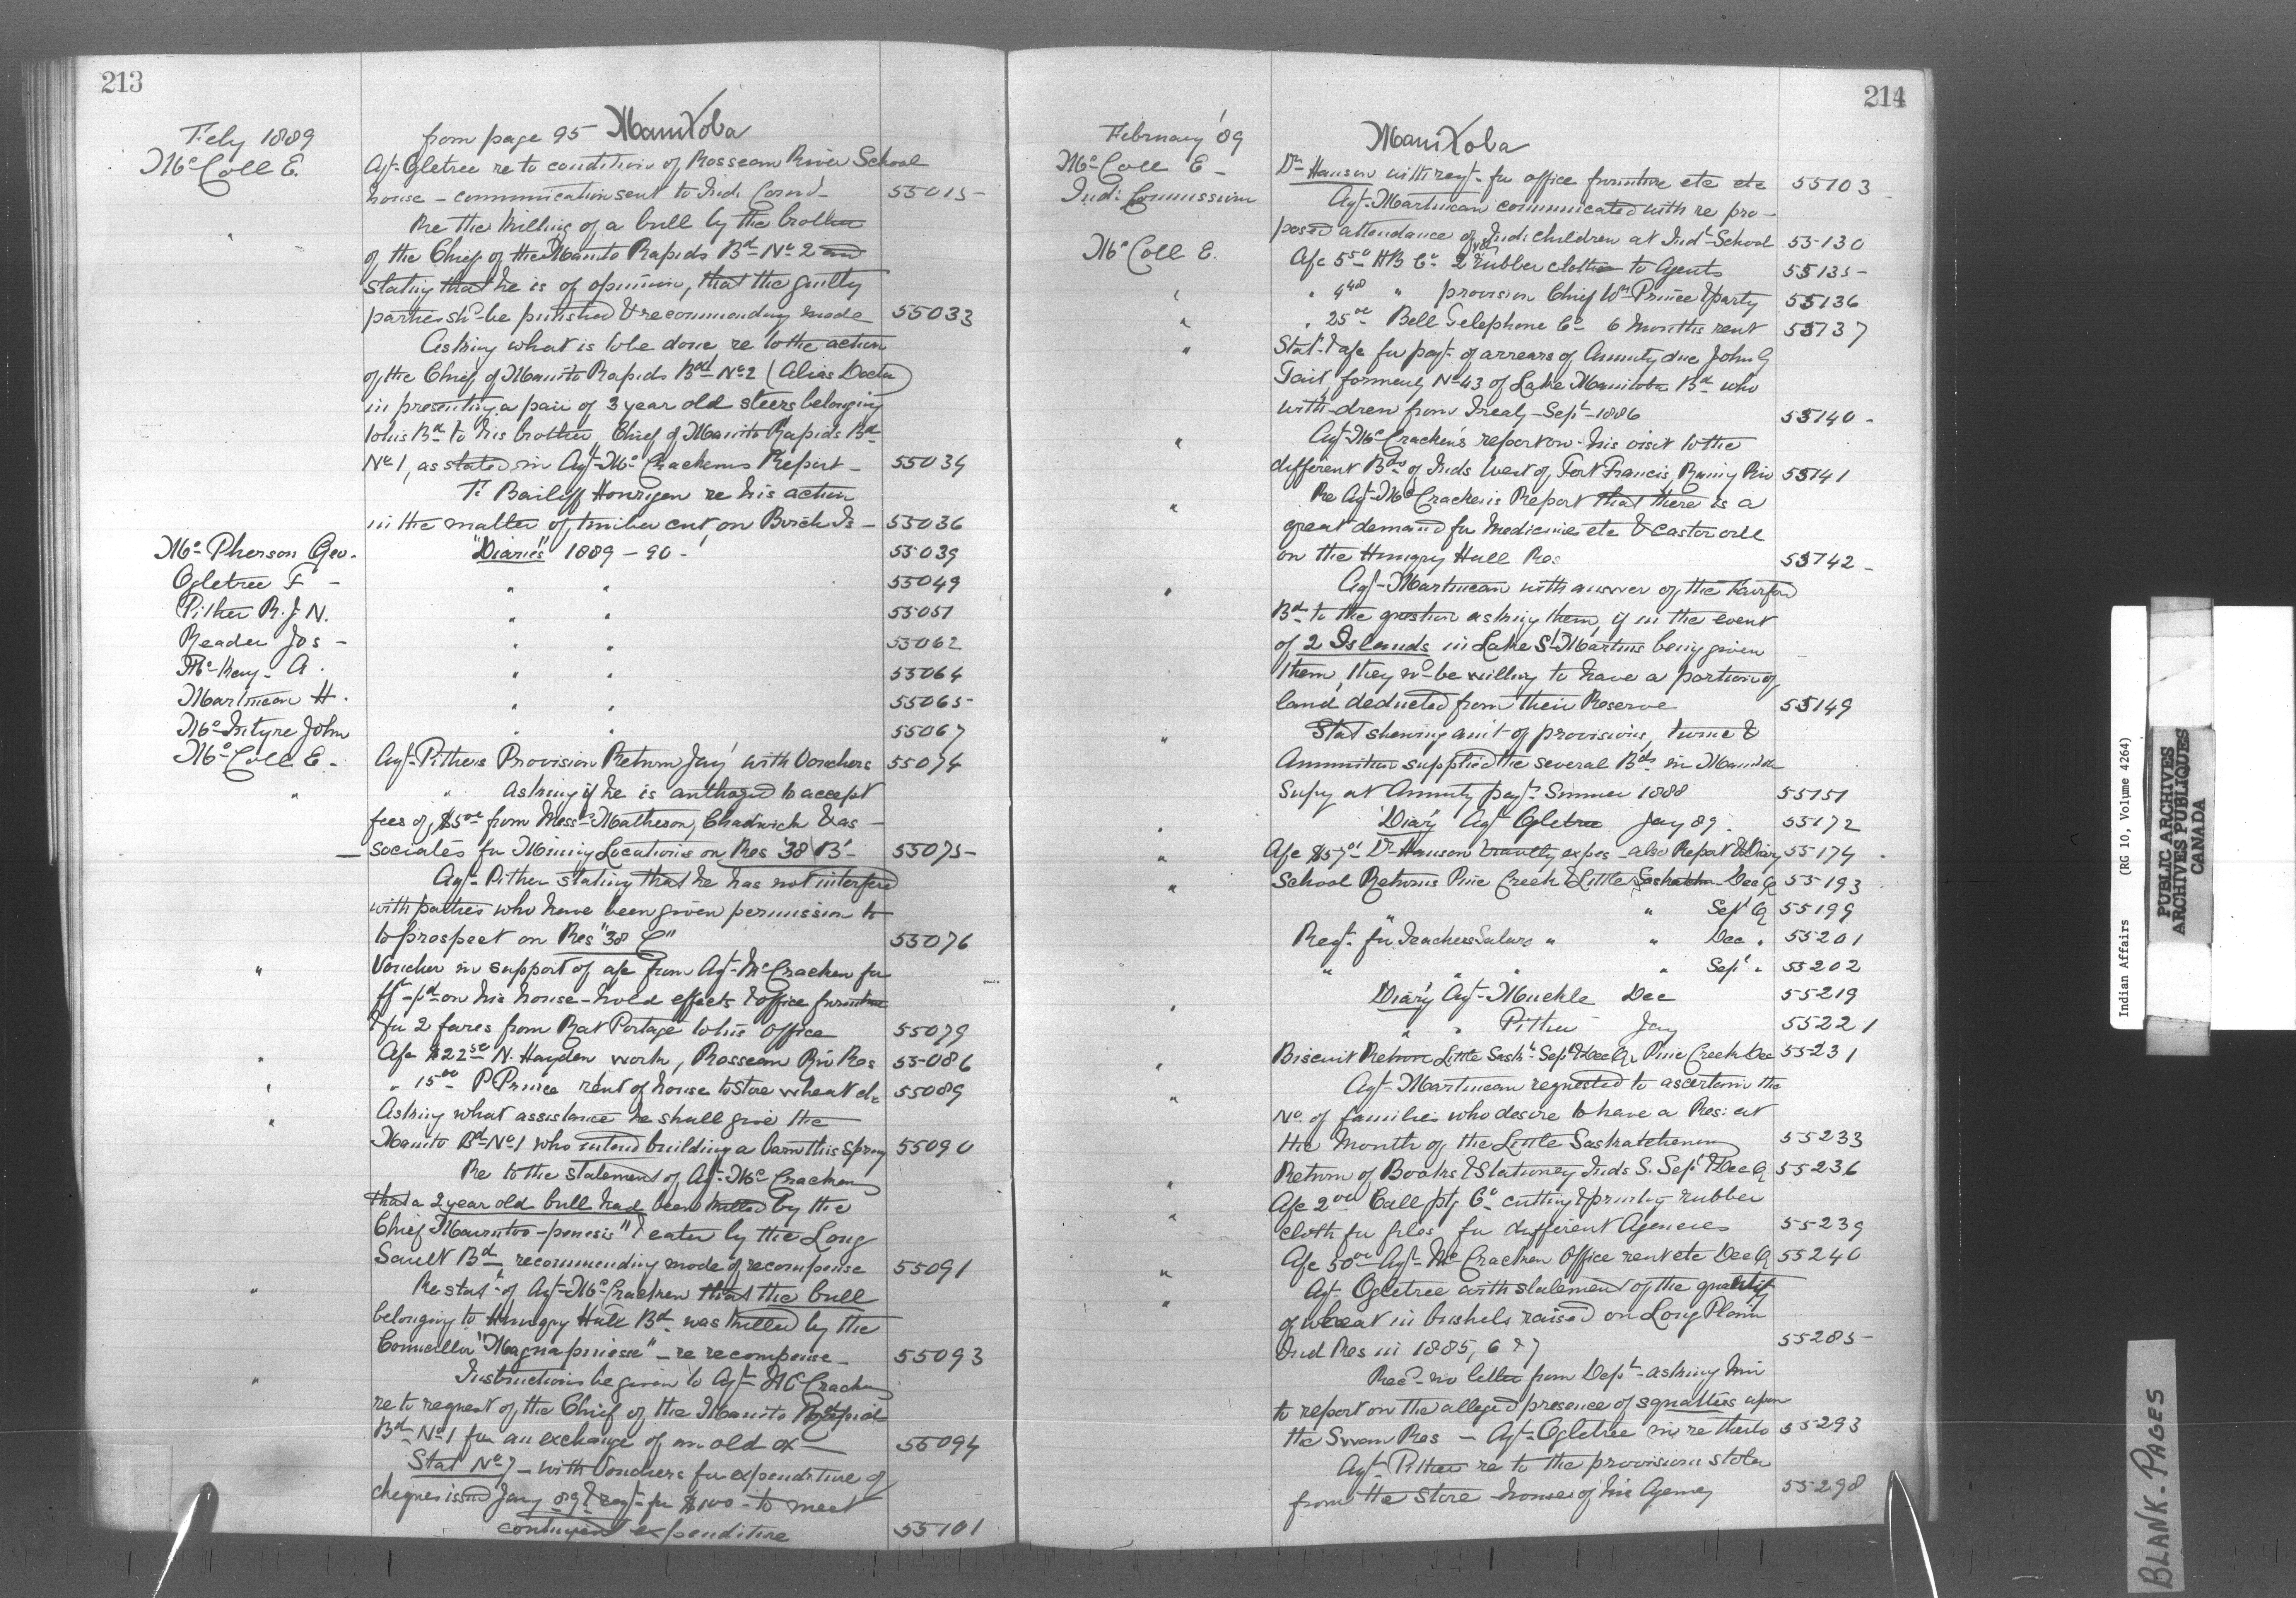 213
from page 95 Manitoba
Feby 1889
McColl E.
Agt. Ogletree re to condition of Rosseau River School
house - communication sent to Ind. Comr. 55015
Re the killing of a bull by the brother
of the Chief of the Manito Rapids Bd No 2 and
stating that he is of opinion, that the guilty
parties shd be punished & recommending mode 55033
Asking what is to be done re to the action
of the Chief of Manito Rapids Bd No 2 (Alias Doctor)
in presenting a pair of 3 year old steers belonging
to his Bd to his brother, Chief of Manito Rapids Bd
No 1, as stated in Agt. McCrackens Report - 55034
To Bailiff Hourigan re his action
in the matter of timber cut on Birch Is - 55036
McPherson Geo. "Diaries" 1889-90 - 55039
Ogletree F - " " 55049
Pither R.J.N. " " 55051
Reader Jos - " " 55062
McKay A. " " 55064
Martineau H. " " 55065
McIntyre John " " 55067
McColl E. Agt. Pithers Provision Return Jay with Vouchers 55074
" " asking if he is authozed to accept
fees of $5.00 from Messrs Matheson, Chadwick & as-
sociates for Mining Locations on Res '38 B' - 55075
Agt. Pither stating that he has not interfered
with parties who have been given permission to
to prospect on Res "38 C" 55076
" Voucher in support of a/c from Agt. McCracken for
frt pd on his house-hold effects & office furniture
& for 2 fares from Rat Portage to his office 55079
" A/c $22.50 N. Hayden work, Rosseau Riv Res 55086
" " 15.00 P Prince rent of house to store wheat etc 55089
" Asking what assistance he shall give the
Manito Bd No 1 who intend building a barn this Spring 55090
Re to the statement of Agt. McCracken
that a 2 year old bull had been killed by the
Chief -penesis" & eaten by the Long
Sault Bd recommending mode of recompense 55091
" Re stat. of Agt. McCracken that the bull
belonging to Hungry Hall Bd was killed by the
Councillor - re recompense - 55093
" Instructions be given to Agt. McCracken
re to request of the Chief of the Manito Rapids
Bd No 1 for an exchange of an old ox - 55094
Stat No 7 - with Vouchers for expenditure of
cheques issued Jany 89 & reqt. for $100 - to meet
contingent expenditure 55101
214
Manitoba
February '89
McColl E - Dr Hanson with reqt. for office furniture etc etc 55103
Ind. Commission Agt. Martineau communicated with re pro-
posed attendance of Ind. children at Indl School 55130
McColl E. A/c 5.50 HB Co 2 yds rubber cloth to Agents 55135
" " 4.48 " provision Chief Wm Prince & party 55136
" " 25.00 Bell Telephone Co 6 months rent 55137
" Stat. & a/c for payt. of arrears of Annuity due John G
Tait, formerly No 43 of Lake Manitoba Bd who
with-drew from Treaty - Sept. 1886 55140
" Agt. McCracken's report on his visit to the
different Bds of Inds West of Fort Francis, Rainy Riv 55141
" Re Agt. McCracken's Report that there is a
great demand for Medicine etc & castor oil
on the Hungry Hall Res 55142
" Agt. Martineau with answer of the Fairford
Bd to the question asking them, if in the event
of 2 Islands in Lake St. Martins being given
them, they wd be willing to have a portion of
land deducted from their Reserve 55149
" Stat shewing amt of provisions, twine &
Ammunition supplied the several Bds in Manitoba
Supy at Annuity payts Summer 1888 55151
" 'Diary' Agt. Ogletree Jany 89. 55172
" A/c $57.01 Dr Hanson travellg expes - also Report & Diary 55174
" School Returns Pine Creek & Little Saskatchn - Dec Q 55193
" Sept Q 55199
Reqt. for Teachers Salars " " Dec " 55201
" " " " Sept " 55202
" Diary Agt. Muckle Dec 55219
" " Pither Jany 55221
" Biscuit Return Little Sask. Sept & Dec Qr Pine Creek Dec 55231
" Agt. Martineau requested to ascertain the
No of families who desire to have a Res. at
the Mouth of the Little Saskatchewan 55233
" Return of Books & Stationery Inds S. Sept & Dec Q 55236
" A/c 2.00 Call ptg Co cutting & printing rubber
cloth for files for different Agencies 55239
" A/c 50.00 Agt. McCracken Office rent etc Dec Q 55240
" Agt. Ogletree with statement of the quantity
of wheat in bushels raised on Long Plain
Ind Res in 1885, 6 & 7 55285
Recd no letter from Dept. asking him
to report on the alleged presence of squatters upon
the Swan Res - Agt. Ogletree in re thereto 55293
Agt. Pither re to the provisions stolen
from the Store house of his Agency 55298
Indian Affairs (RG 10, Volume 4264)
PUBLIC ARCHIVES
ARCHIVES PUBLIQUES
CANADA
BLANK-PAGES